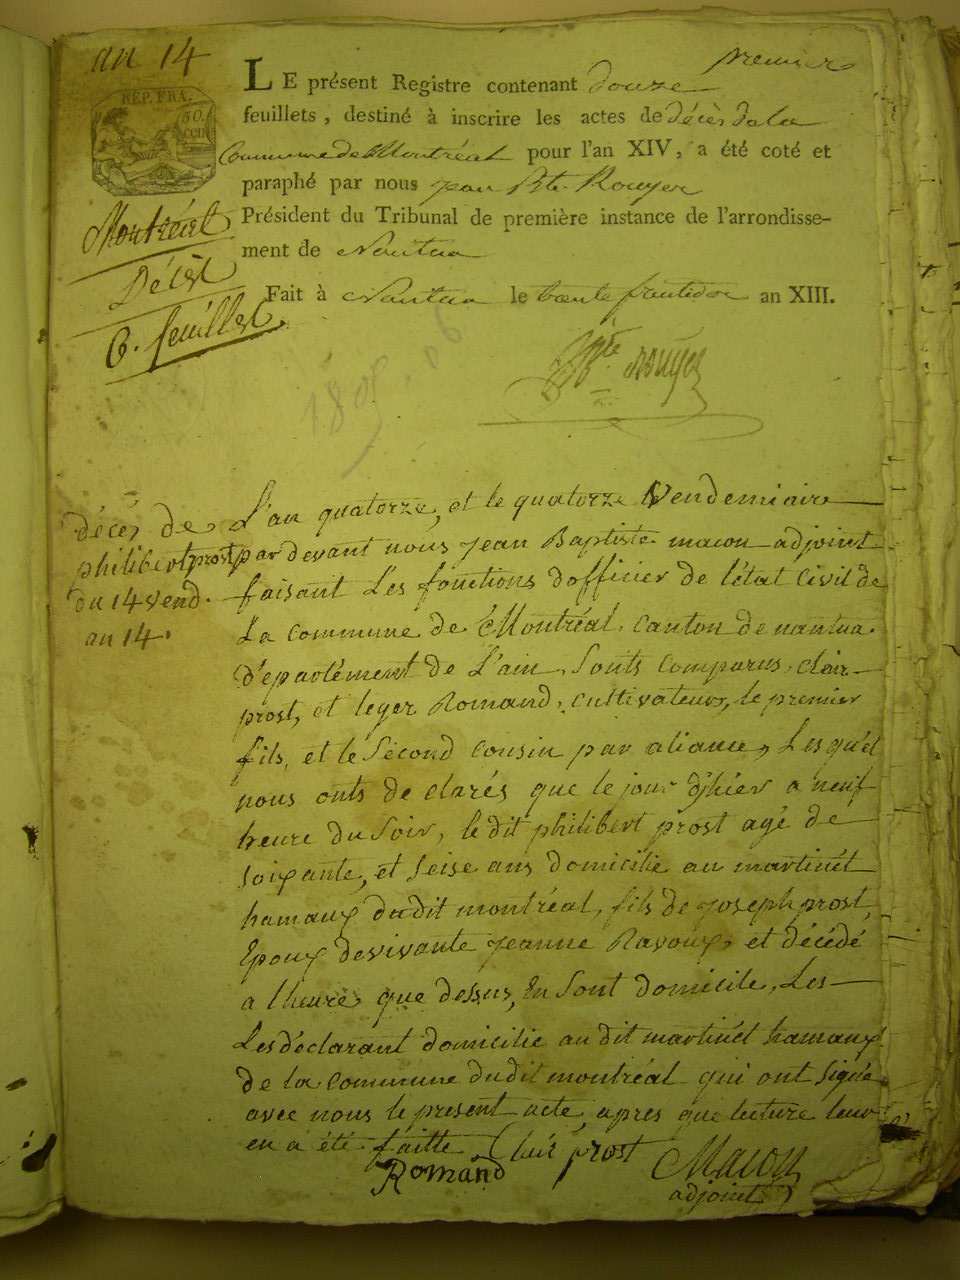 an 14
premier
REP. FRA.
50.
cen
LE présent Registre contenant douze
feuillets, destiné à inscrire les actes de décès de la
Commune de Montréal pour l'an XIV, a été coté et
paraphé par nous Jean Bte. Rouyer
Président du Tribunal de première instance de l'arrondisse-
ment de Nantua
Fait à Nantua le trente fructidor an XIII.
Montréal
Décès
6. feuillet
Bte. Rouyer
décés de
philibert prost
du 14 vend.
an 14.
L'an quatorze, et le quatorze Vendemiaire
par devant nous Jean Baptiste macon adjoint
faisant Les fonctions dofficier de l'état Civil de
La commune de Montréal, Canton de nantua
Département de L'ain, Sonts comparus, clair
prost, et leger Romand, cultivateurs, le premier
fils, et le Sécond cousin par aliance, Les quel
nous onts de clarés que le jour d'hier a neuf
heure du Soir, le dit philibert prost agé de
soixante, et seise ans domicilie au martinét
hamaux du dit montréal, fils de Joseph prost,
Epoux de vivante Jeanne Ravoux, et décédé
a l'heure que dessus, En Sont domicile, Les
Les déclarant domicilie au dit martinét hamaux
de la commune du dit montréal qui ont signé
avec nous le present acte, apres que lecture leur
en a été faitte, Clair prost
Romand
Macon
adjoint